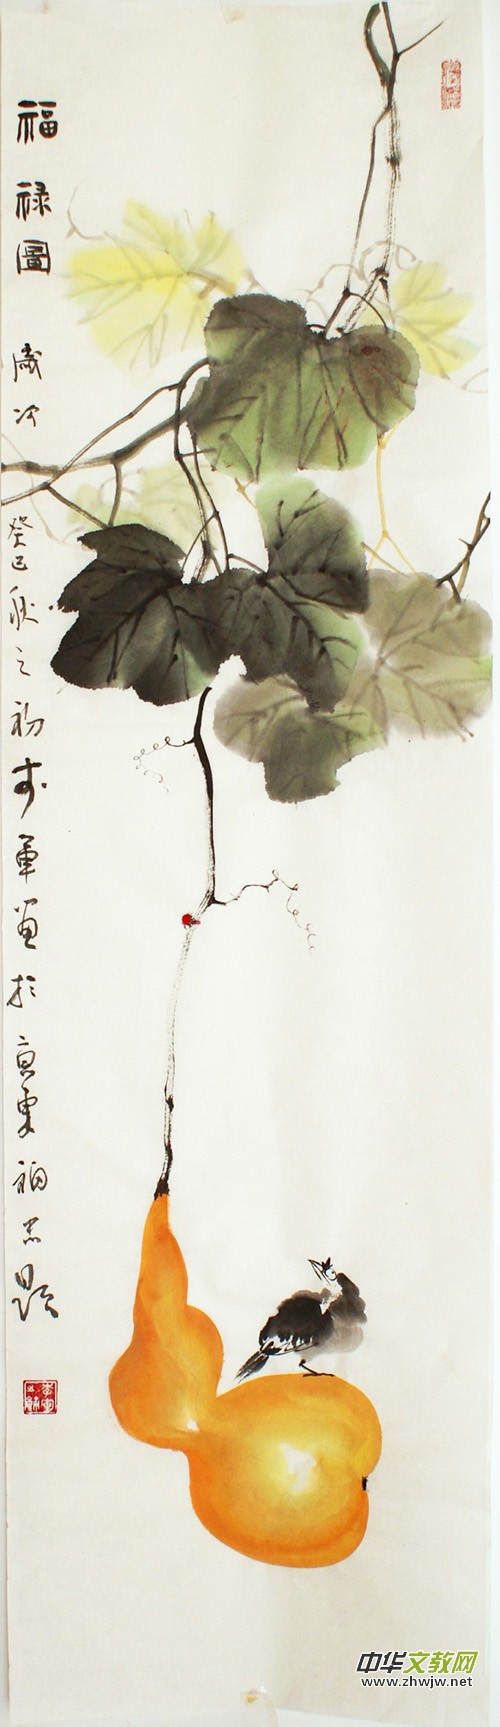 福禄圖 歲次癸巳秋之初 軍畫於京東 題
中华文教网
www.zhwjw.net